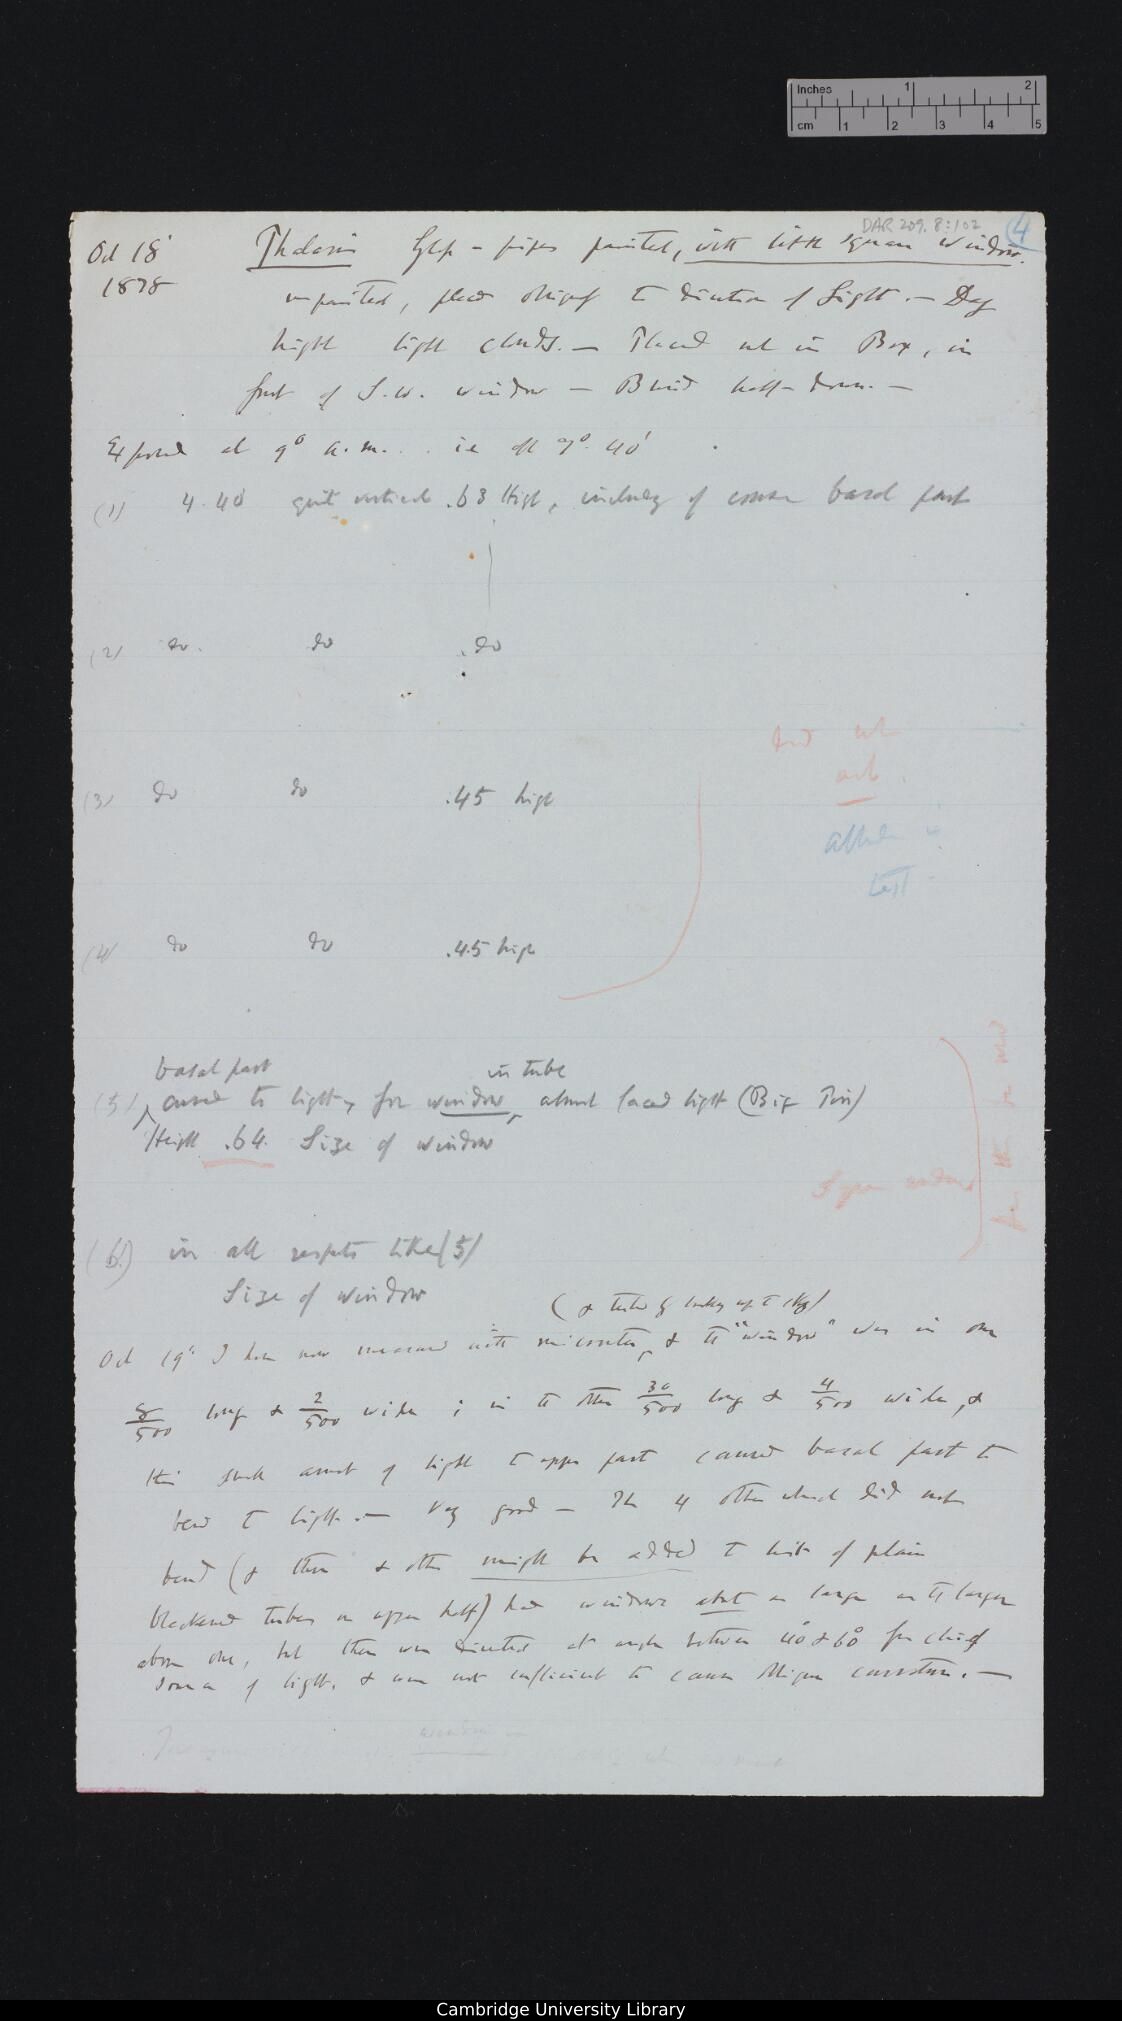 Inches 1 2
cm 1 2 3 4 5
DAR 209.8:102 (4
Oct 18' Phalaris Glass-pipes painted, with little square window
1878
unpainted, placed obliquely to direction of Light. — Day
bright light clouds. — Placed in Box, in
front of S.W. window — Blind half-down. —
Exposed at 9° a.m. . ie 7°. 40'
(1) 4. 40' quite vertical .63 High, including of basal part
(2) do. do .do
(3) do do .45 high
did not
act.
(4) do do .45 high
basal part in tube
(5) curved to light, for window, faced light (Big Pin)
Height .64. Size of window
(6) in all respects like (5)
Size of window
Oct 19' I have now measured with micrometer, & the "window" was in one
8/500 long & 2/500 wide ; in the other 30/500 long & 4/500 wide, &
this small amount of light to upper part caused basal part to
bend to light. — Very good — The 4 others which did not
bend (& these & others might be added to lists of plain
blackened tubes on upper half) had windows about as large as the larger
above one, but these were directed at angle between 40° & 60° from chief
source of light, & were not sufficient to cause oblique curvature. —
window
Cambridge University Library